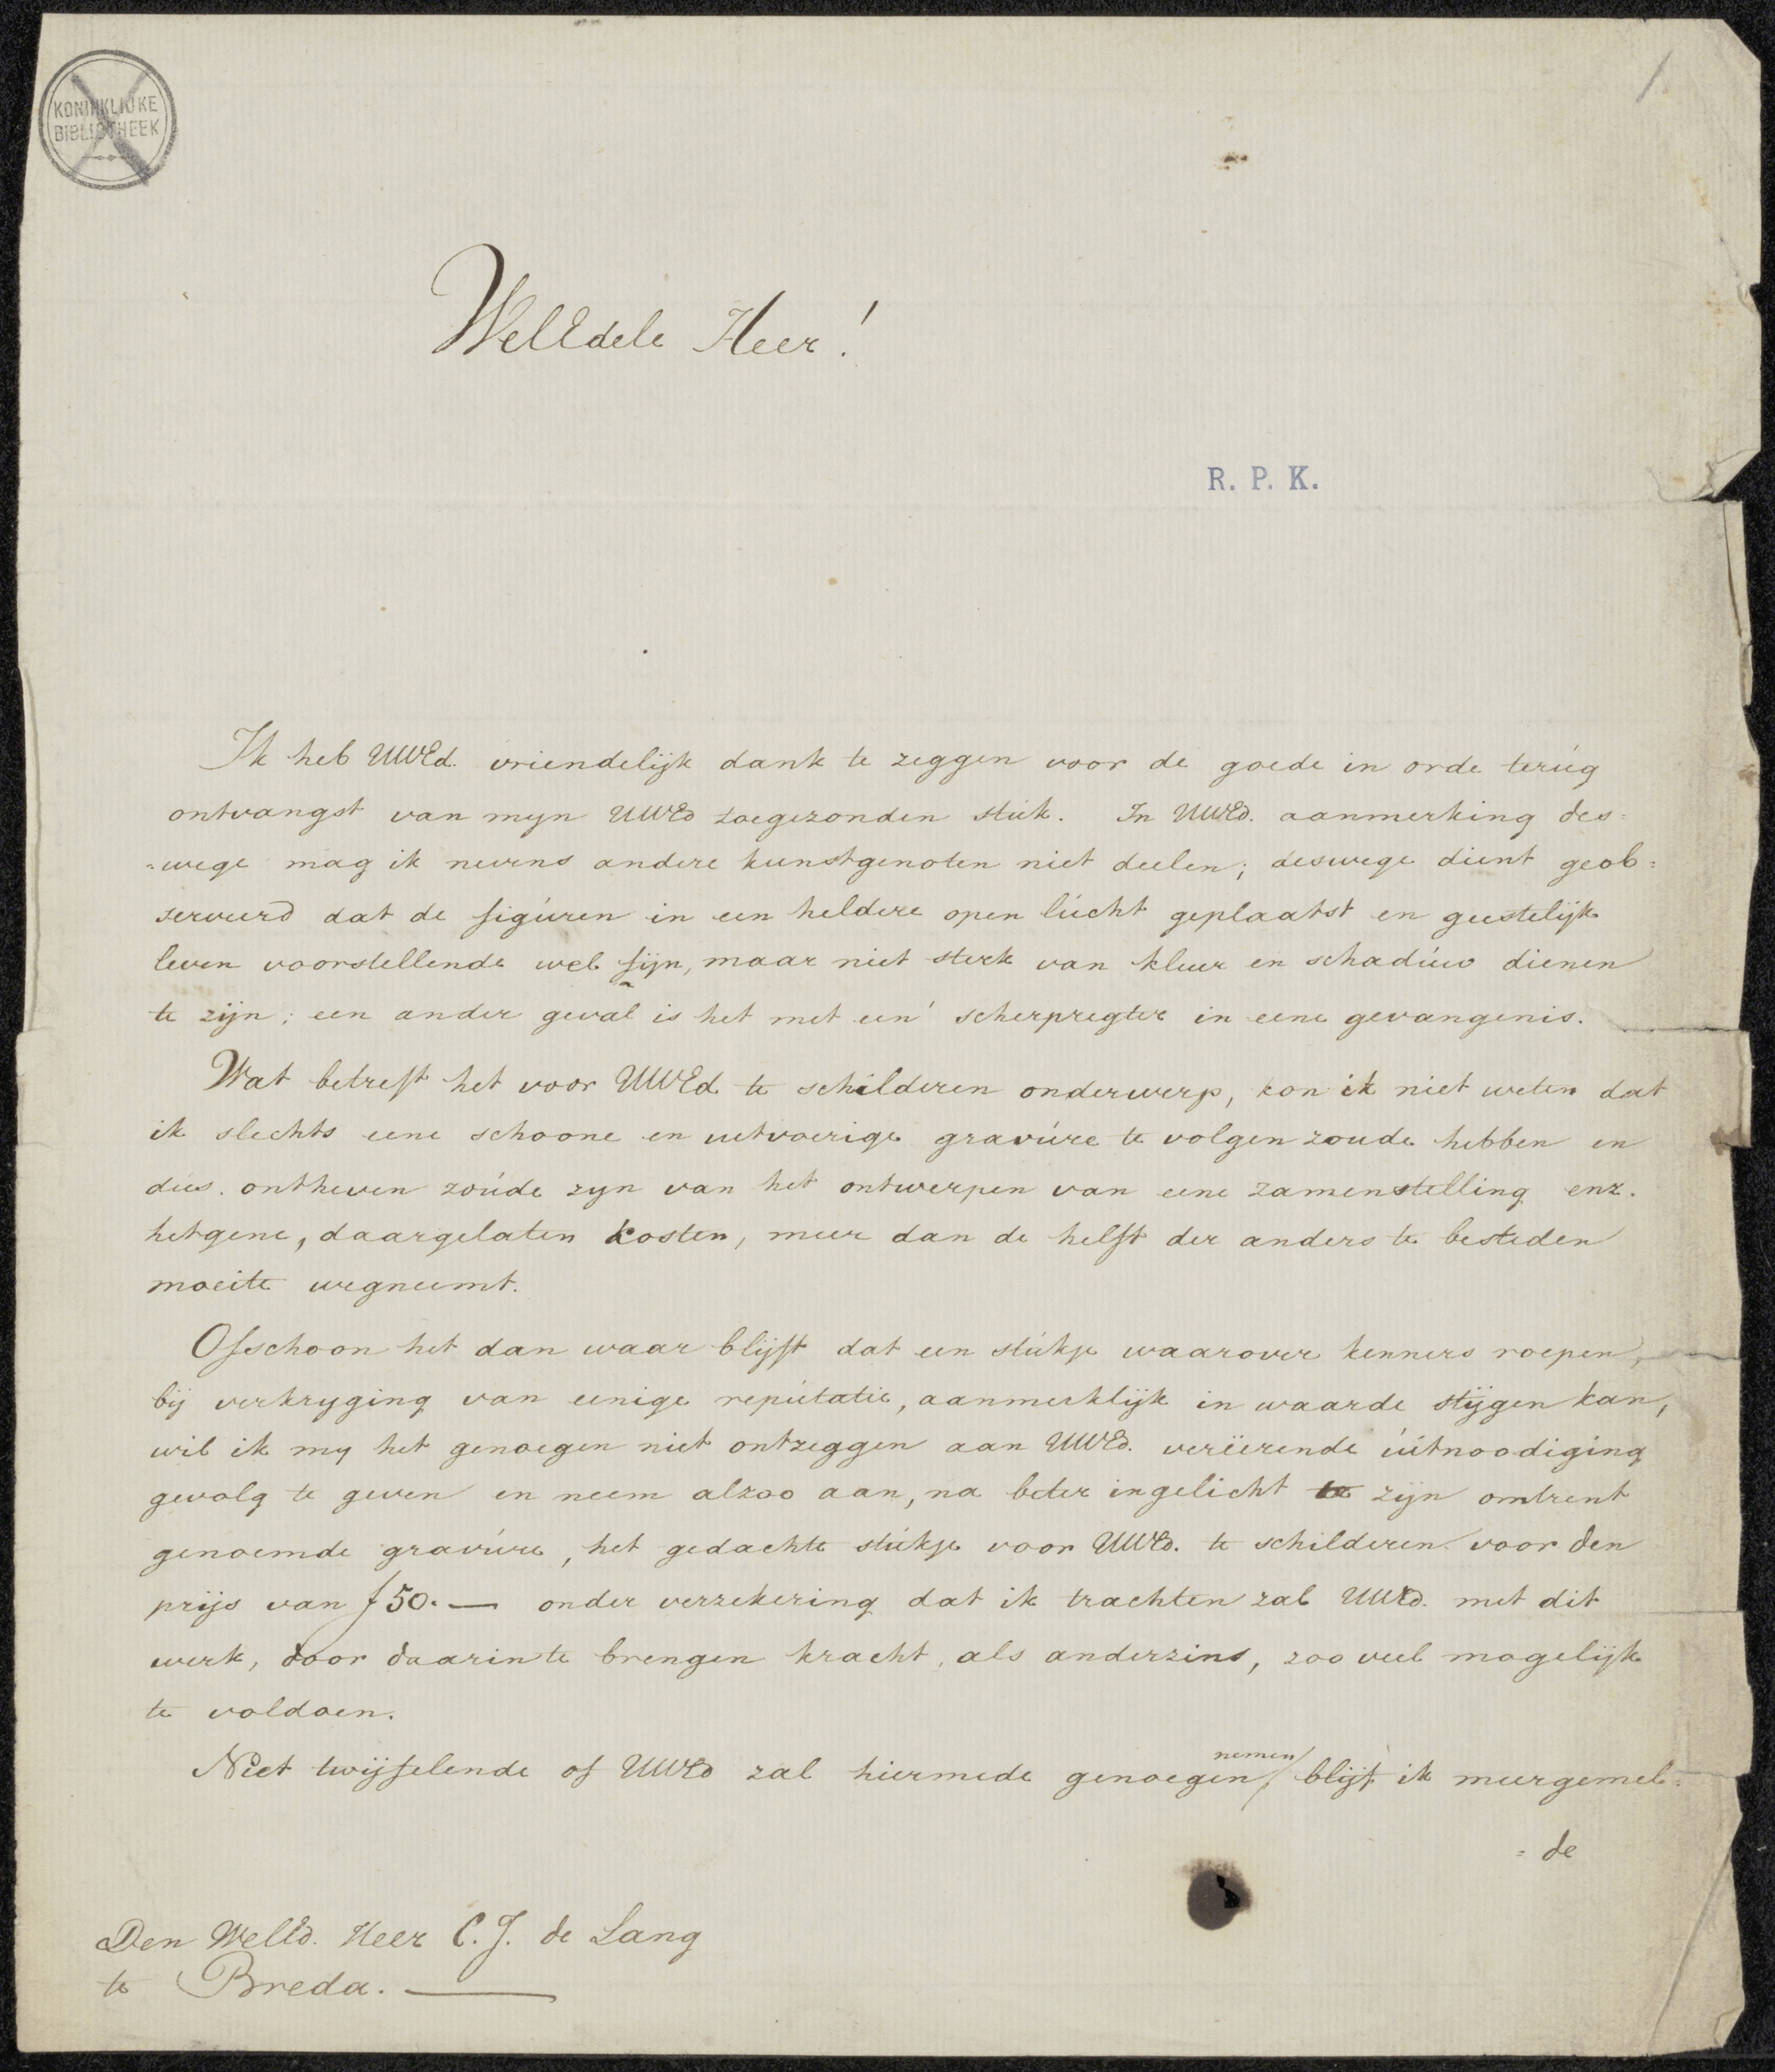 KONINKLIJKE
BIBLIOTHEEK
WelEdele Heer!
R. P. K.
Ik heb UWEd. vriendelijk dank te zeggen voor de goede in orde terúg
ontvangst van myn UWEd toegezonden stúk. In UWEd. aanmerking des=
=wege mag ik nevens andere kunstgenoten niet deelen; deswege dient geob=
serveerd dat de figúren in een heldere open lúcht geplaatst en geestelijk
leven voorstellende wel fijn, maar niet sterk van kleur en schadúw dienen
te zijn; een ander geval is het met een scherpregter in eene gevangenis.
Wat betreft het voor UWEd te schilderen onderwerp, kon ik niet weten dat
ik slechts eene schoone en uitvoerige gravúre te volgen zoude hebben en
dús. ontheven zoúde zyn van het ontwerpen van eene zamenstelling enz.
hetgene, daargelaten kosten, meer dan de helft der anders te besteden
moeite wegneemt.
Ofschoon het dan waar blijft dat een stúkje waarover kenners roepen,
bij verkryging van eenige repútatie, aanmerklijk in waarde stijgen kan,
wil ik my het genoegen niet ontzeggen aan UWEd. verëerende úitnoodiging
gevolg te geven en neem alzoo aan, na beter ingelicht te zijn omtrent
genoemde gravúre, het gedachte stúkje voor UWEd. te schilderen voor den
prijs van f 50.— onder verzekering dat ik trachten zal UWEd. met dit
werk, door daarin te brengen kracht, als anderzins, zoo veel mogelijk
te voldoen.
Niet twijfelende of UWEd zal hiermede genoegen nemen, blijf ik meergemel=
= de
Den WelEd. Heer C. J. de Lang
te Breda. —